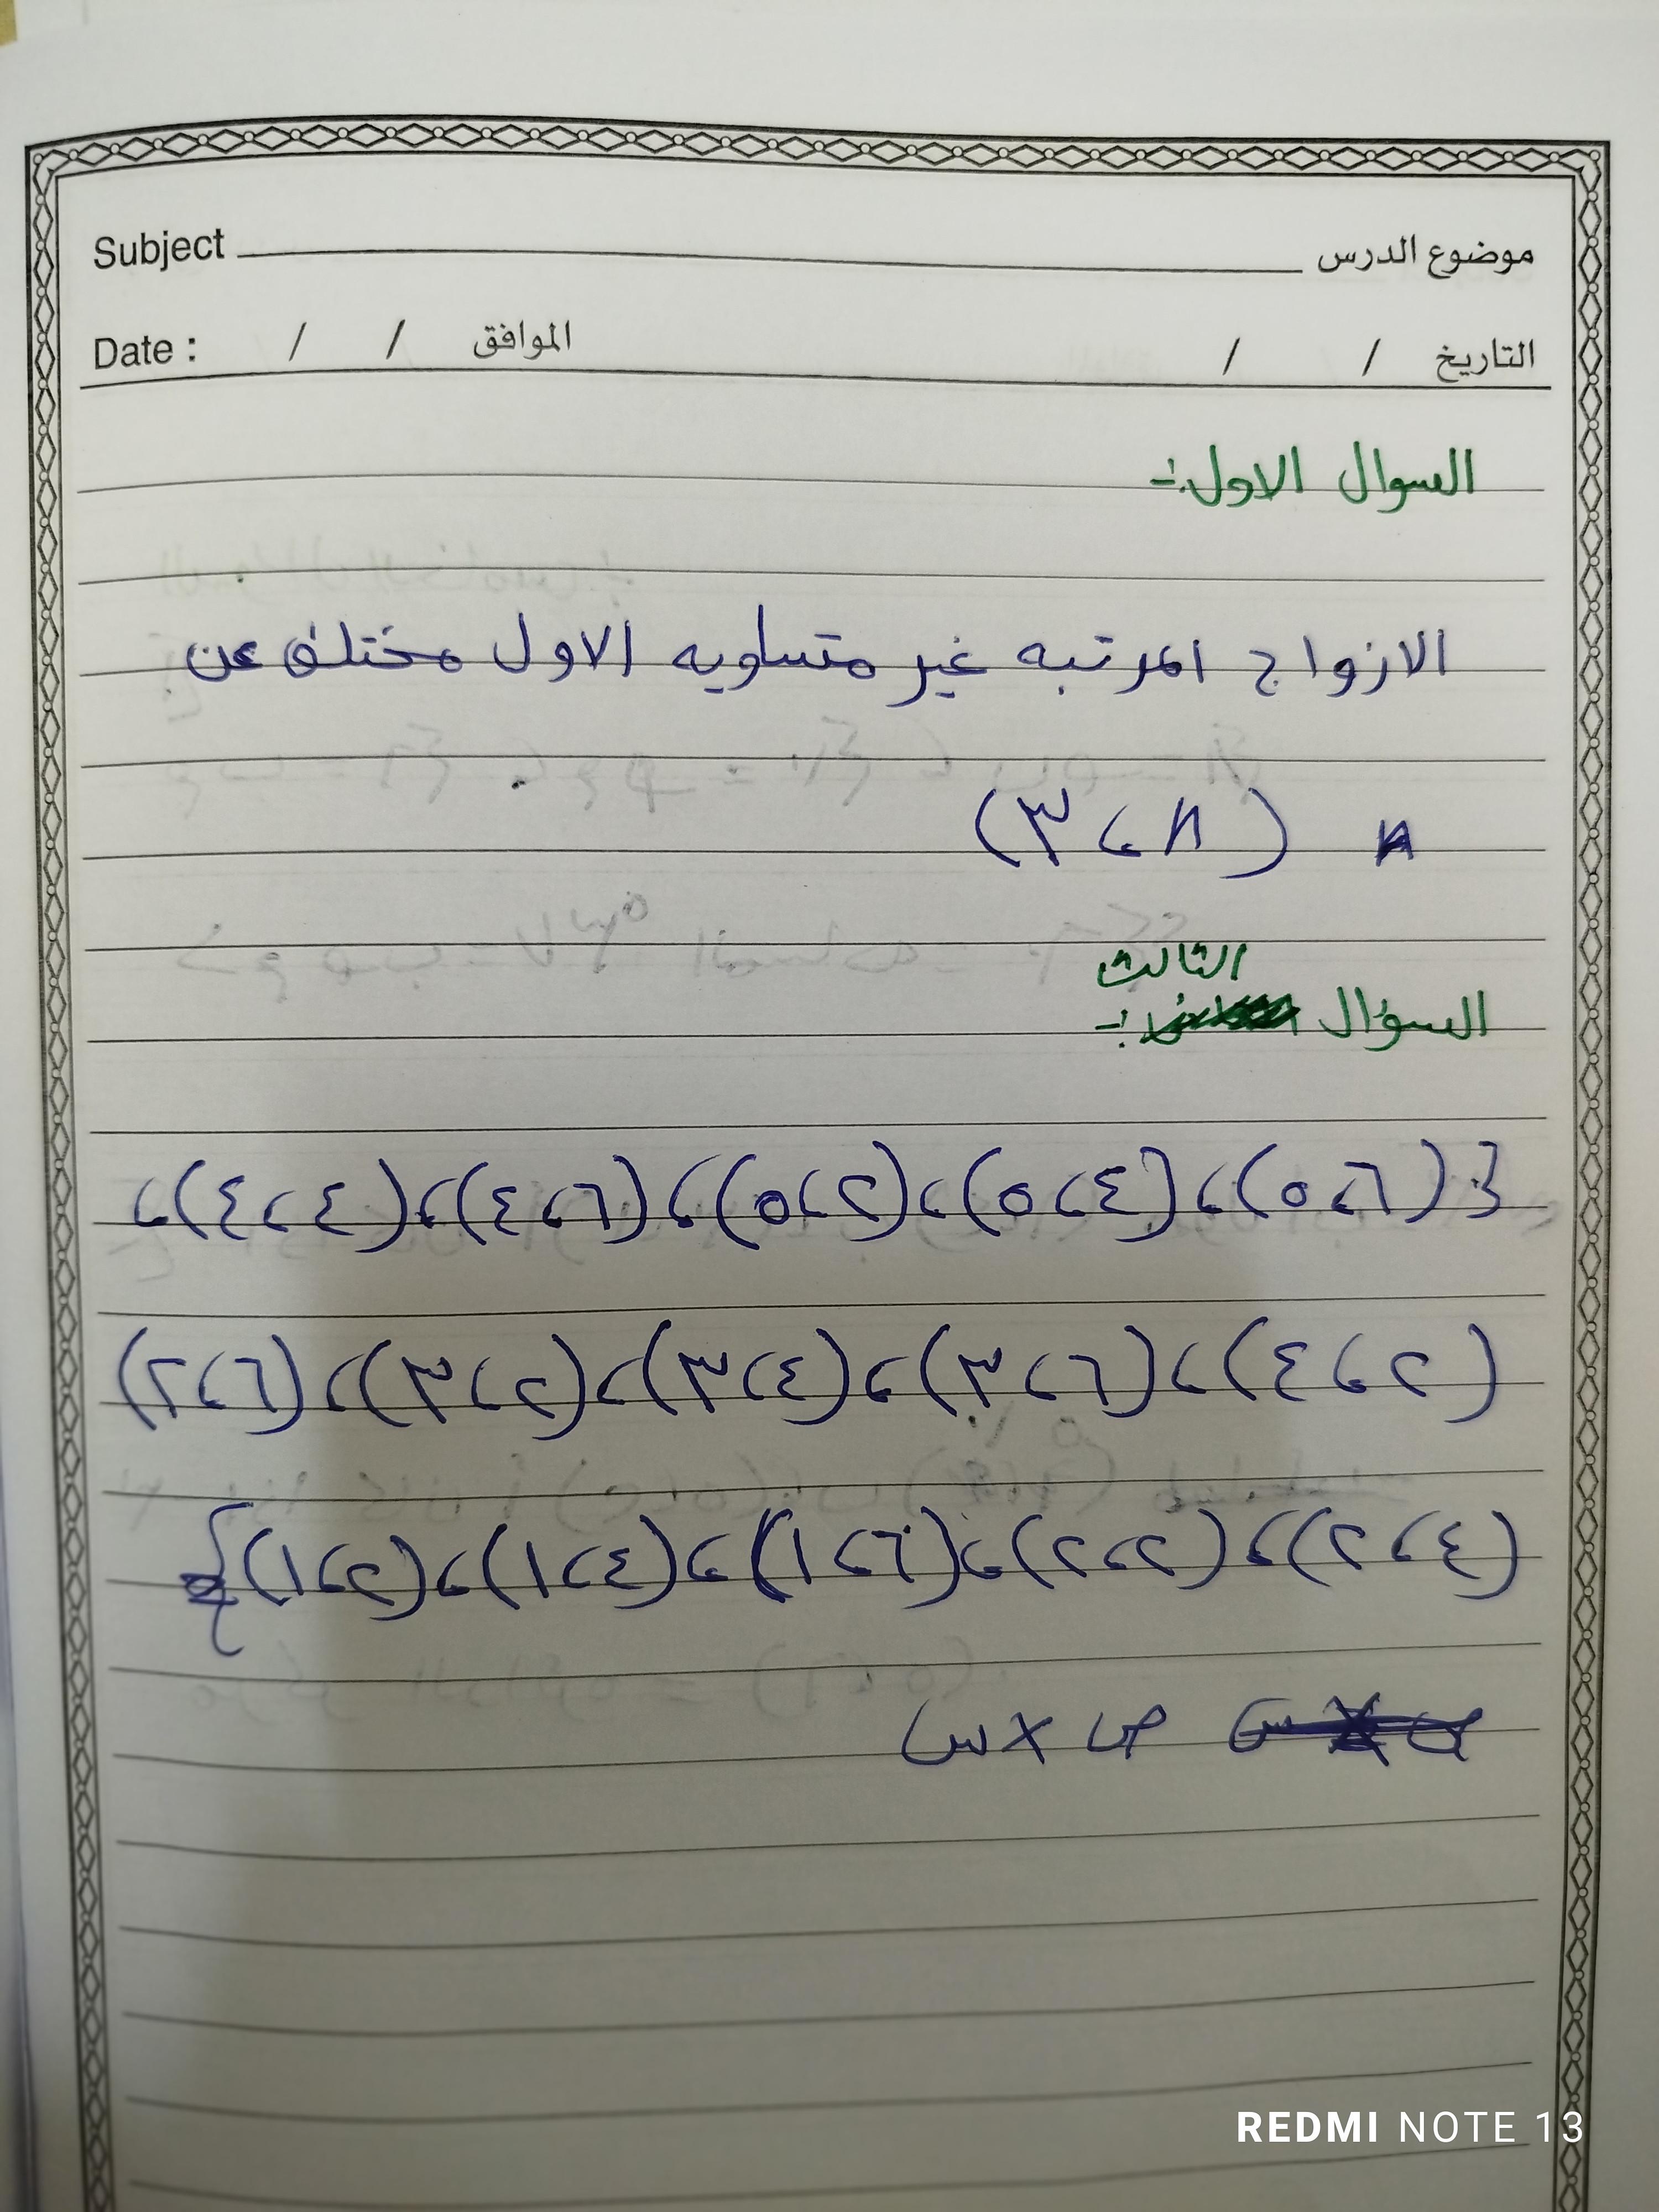 Subject موضوع الدرس
Date : / / الموافق / / التاريخ
السوال الاول:-
الازواج المرتبه غير متساويه الاول مختلف عن
(٨ ، ٣)
الثالث
السؤال :-
{(٦،٥)،(٤،٥)،(٢،٥)،(٦،٤)،(٤،٤)،
(٢،٤)،(٦،٣)،(٤،٣)،(٢،٣)،(٦،٢)
(٤،٢)،(٢،٢)،(٦،١)،(٤،١)،(٢،١)}
ص × س
REDMI NOTE 13